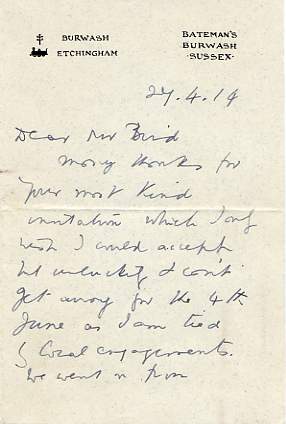 BURWASH
ETCHINGHAM
BATEMAN'S
BURWASH
SUSSEX.
27.4.19
Dear Mr Bird
many thanks for
your most kind
invitation which I only
wish I could accept
but unluckily I can't
get away for the 4th
June as I am tied
by local engagements.
We went